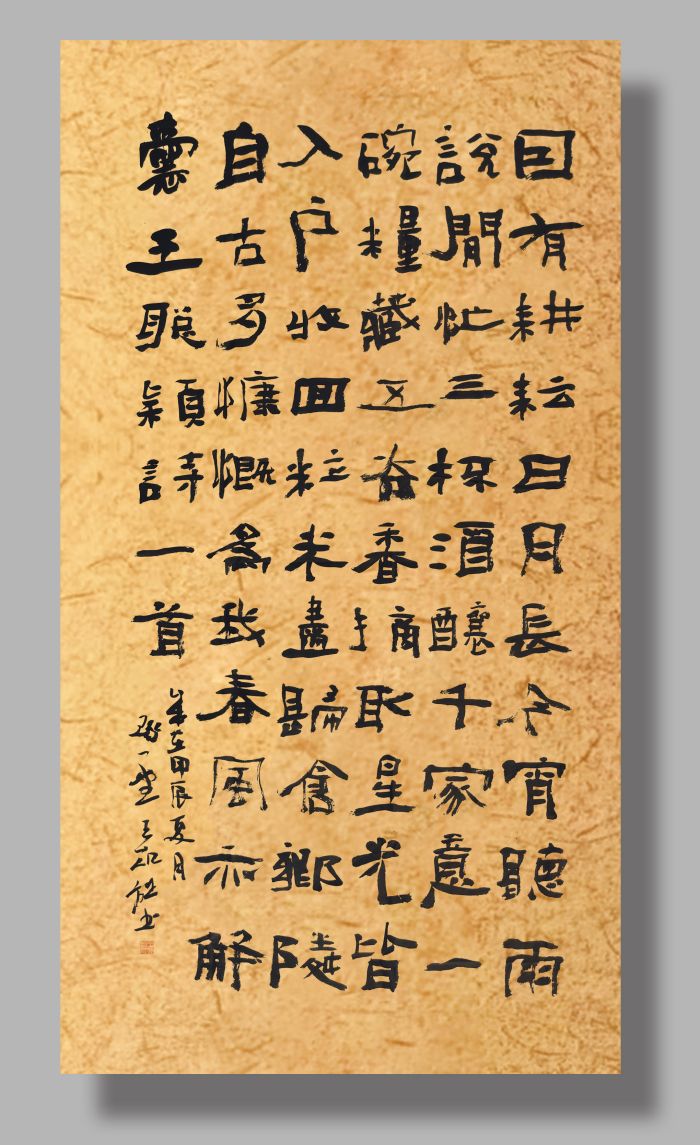 囙有耕耘日月長今宵聽雨
說間忙三杯酒釀千家意一
碗糧藏五谷香摘取星光皆
入户收回粒米盡歸倉鄢陵
自古多慷慨為我春風亦解
囊王聰穎詩一首
歲在甲辰夏月
一堂王书